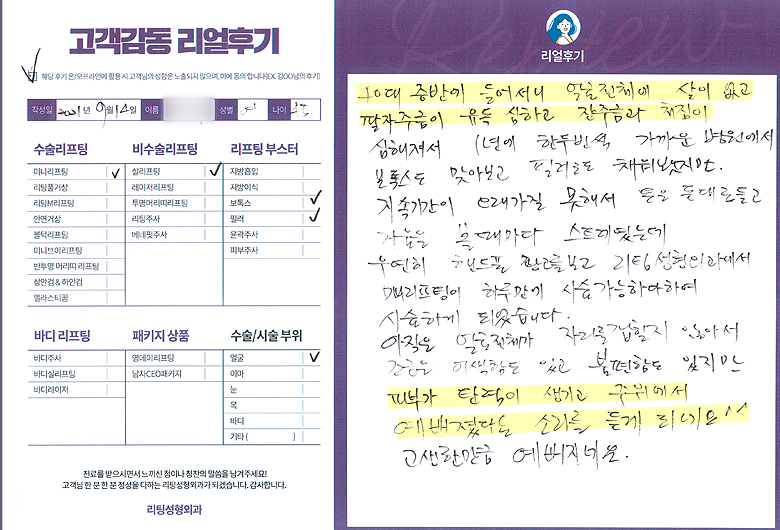 고객감동 리얼후기
해당 후기 온/오프라인에 활용 시 고객님의 성함은 노출되지 않으며, 이에 동의 합니다(EX. 김OO님의 후기)
작성일 2021년 9월 14일 이름 성별 여 나이
수술리프팅
미니리프팅
리팅풀기상
리팅M리프팅
안면거상
볼턱리프팅
미니브이리프팅
반투명 머리띠 리프팅
상안검 & 하안검
엘라스티꿈
비수술리프팅
실리프팅
레이저리프팅
투명머리띠리프팅
리팅주사
베네핏주사
리프팅 부스터
지방흡입
지방이식
보톡스
필러
윤곽주사
피부주사
바디 리프팅
바디주사
바디실리프팅
바디레이저
패키지 상품
영데이리프팅
남자CEO패키지
수술/시술 부위
얼굴
이마
눈
목
바디
기타 ( )
진료를 받으시면서 느끼신 점이나 칭찬의 말씀을 남겨주세요!
고객님 한 분 한 분 정성을 다하는 리팅성형외과가 되겠습니다. 감사합니다.
리팅성형외과
Review
리얼후기
중반에 들어서니 얼굴전체에 살이 없고
팔자주름이 유독 심하고 잔주름과 처짐이
심해져서 1년에 한두번씩 가까운 병원에서
보톡스도 맞아보고 필러로도 채워보았지만.
지속기간이 오래가질 못해서 돈은 돈대로들고
거울을 볼때마다 스트레스였는데
우연히 핸드폰 광고를보고 리팅성형외과에서
미니리프팅이 하루만에 시술가능하다하여
시술하게 되었습니다.
아직은 얼굴전체가 자리를잡힐지 않아서
조금은 어색함도 있고 불편함도 있지만
피부가 탄력이 생기고 주위에서
예뻐졌다는 소리를 듣게 되네요^^
고생한만큼 예뻐지네요.